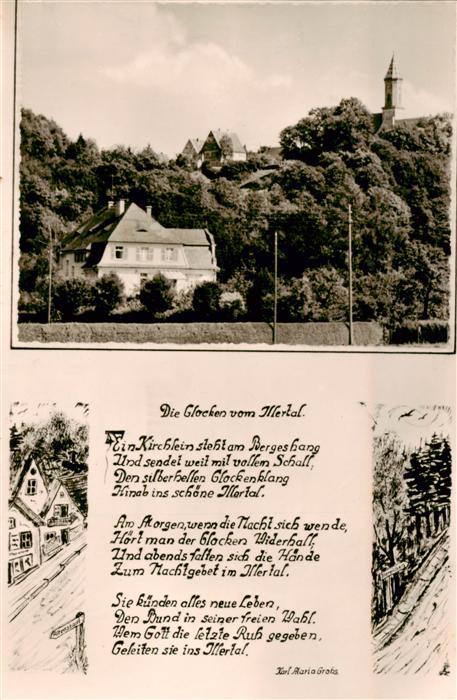 Die Glocken vom Illertal.
Ein Kirchlein steht am Bergeshang
Und sendet weit mit vollem Schall,
Den silberhellen Glockenklang
Hinab ins schöne Illertal.
Am Morgen, wenn die Nacht sich wende,
Hört man der Glocken Widerhall,
Und abends falten sich die Hände
Zum Nachtgebet im Illertal.
Sie künden alles neue Leben,
Den Bund in seiner freien Wahl.
Wem Gott die letzte Ruh gegeben,
Geleiten sie ins Illertal.
Karl Maria Grohs